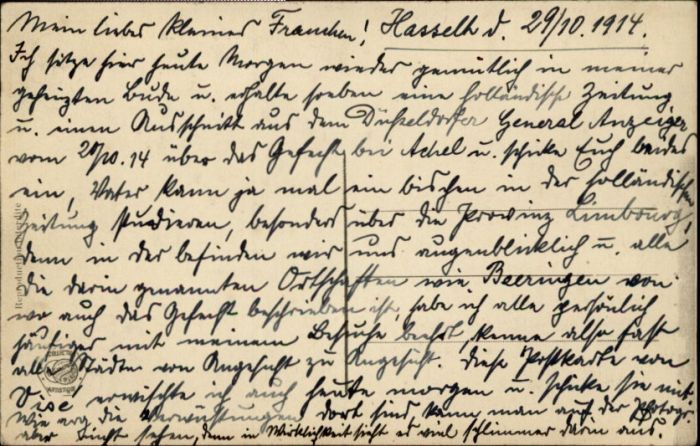 Mein liebes kleines Frauchen! Hasselt d. 29/10.1914.
Ich sitze hier heute Morgen wieder gemütlich in meiner
geheizten Bude u. erhalte soeben eine holländische Zeitung
u. einen Ausschnitt aus dem Düsseldorfer General Anzeiger
vom 20/10.14 über das Gefecht bei Achel u. schicke Euch beides
ein, Vater kann ja mal ein bischen in der holländischen
Zeitung studieren, besonders über die Provinz Limbourg,
denn in der befinden wir uns augenblicklich u. alle
die darin genannten Ortschaften wie Baeringen von
wo auch das Gefecht beschrieben ist, habe ich alle persönlich
häufiger mit meinem Besuche beehrt kenne also fast
alle Städte von Angesicht zu Angesicht. Diese Postkarte von
Vise erwischte ich auch heute morgen u. schicke sie mit.
wie arg die Verwüstungen dort sind kann man auf der Photogr.
aber nicht sehen, denn in Wirklichkeit sieht es viel schlimmer darin aus.
Reproduction interdite